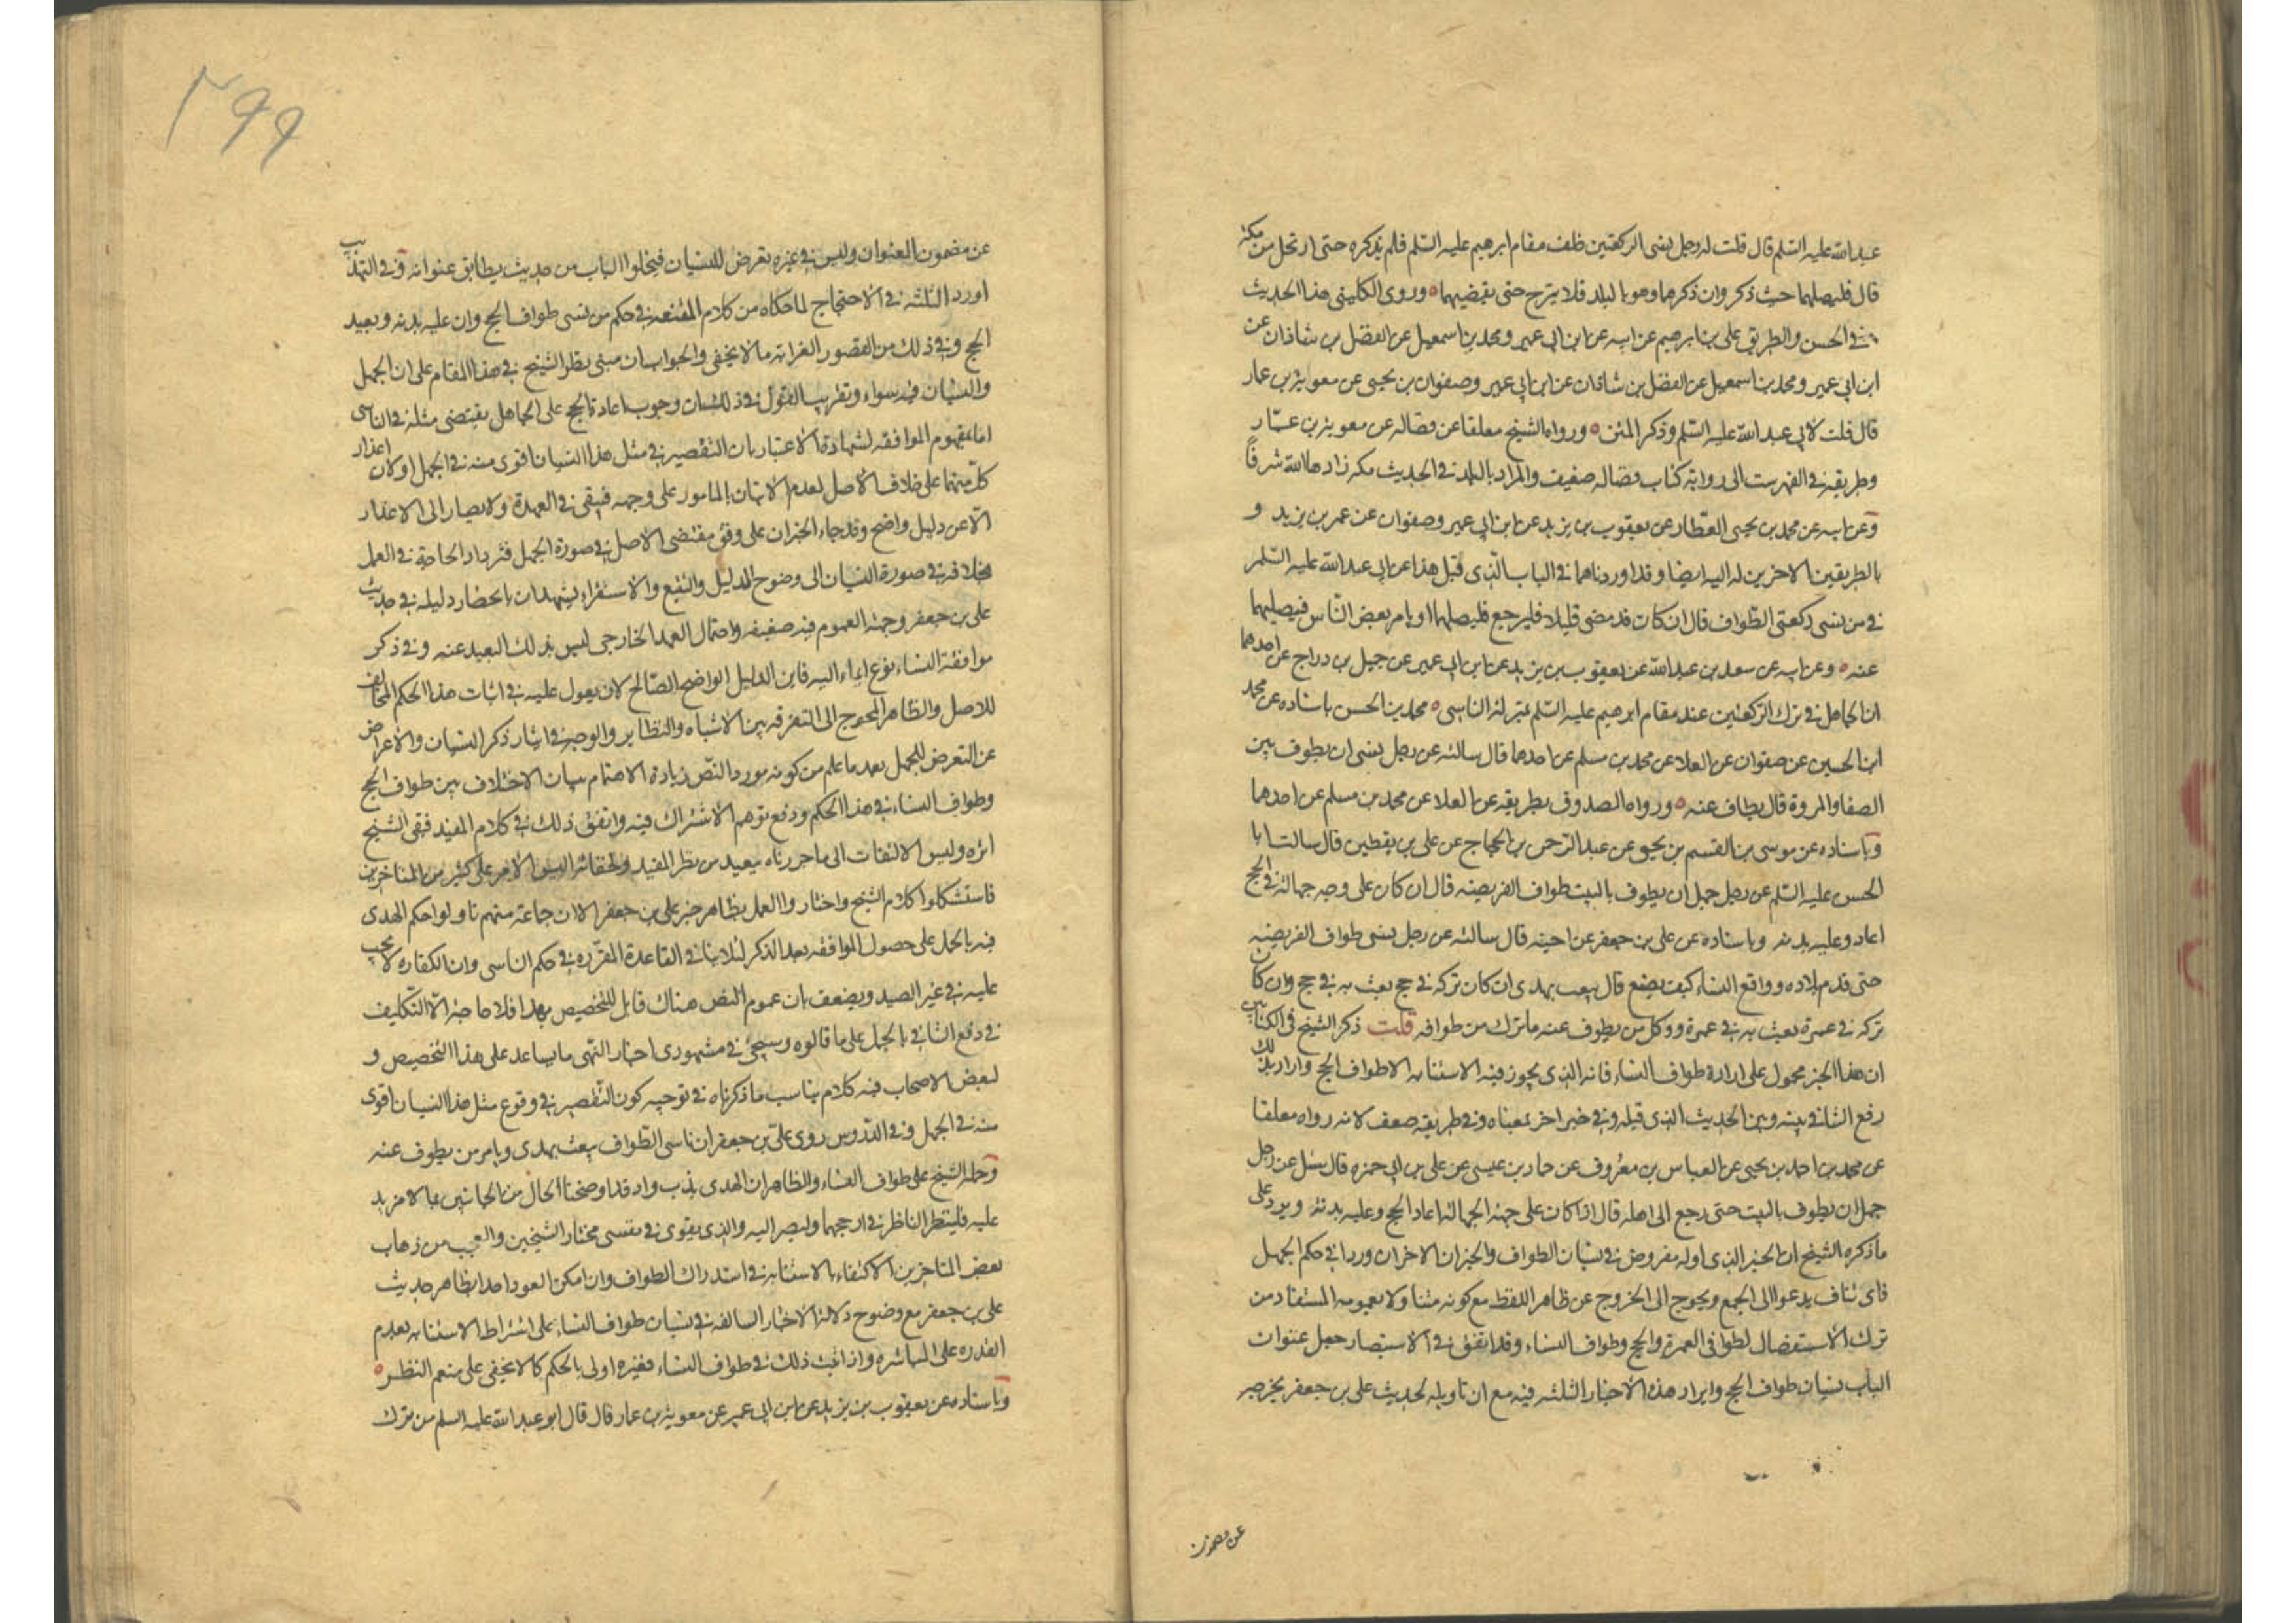 عبد الله عليه السلم قال قلت له رجل نسى الركعتين خلف مقام ابرهيم عليه السلم فلم يذكره حتى ارتحل من مكة
قال فليصلهما حيث ذكر وان ذكرهما وهو بالبلد فلا يبرح حتى يقضيهما ه وروى الكلينى هذا الحديث
في الحسن والطريق على بن ابرهيم عن ابيه عن ابن ابى عمير ومحمد بن اسمعيل عن الفضل بن شاذان عن
ابن ابي عمير ومحمد بن اسمعيل عن الفضل بن شاذان عن ابن ابى عمير وصفوان بن يحيى عن معوية بن عمار
قال قلت لابى عبد الله عليه السلم وذكر المتن ه ورواه الشيخ معلقا عن فضاله عن معوية بن عمّار
وطريقه في الفهرست الى رواية كتاب فضاله ضعيف والمراد بالبلد في الحديث مكه زادها الله شرفاً
وعن ابيه عن محمد بن يحيى العطار عن يعقوب بن يزيد عن ابن ابى عمير وصفوان عن عمر بن يزيد و
بالطريقين الاخرين له اليه ايضا وقد اوردناهما في الباب الذى قبل هذا عن ابى عبد الله عليه السلم
في من نسى ركعتى الطواف قال ان كان قد مضى قليلا فليرجع فليصلهما او يامر بعض الناس فيصليهما
عنه ه وعن ابيه عن سعد بن عبد الله عن يعقوب بن يزيد عن ابن ابى عمير عن جميل بن دراج عن احدهما
ان الجاهل في ترك الركعتين عند مقام ابرهيم عليه السلم بمنزلة الناسى ه محمد بن الحسن باسناده عن محمد
ابن الحسين عن صفوان عن العلا عن محمد بن مسلم عن احدهما قال سالته عن رجل نسى ان يطوف بين
الصفا والمروة قال يطاف عنه ه ورواه الصدوق بطريقه عن العلا عن محمد بن مسلم عن احدهما
وباسناده عن موسى بن القسم بن يحيى عن عبد الرحمن بن الحجاج عن على بن يقطين قال سالت ابا
الحسن عليه السلم عن رجل جهل ان يطوف بالبيت طواف الفريضة قال ان كان على وجه جهالة في الحج
اعاد وعليه بدنه وباسناده عن على بن جعفر عن اخيه قال سالته عن رجل نسى طواف الفريضه
حتى قدم بلاده وواقع النساء كيف يصنع قال يبعث بهدى ان كان تركه في حج بعث به في حج وان كان
تركه في عمرة بعث به في عمرة ووكل من يطوف عنه ما ترك من طوافه قلت ذكر الشيخ في الكتابين
ان هذا الخبر محمول على ارادة طواف النساء فانه الذى يجوز فيه الاستنابه لا طواف الحج واراد بذلك
رفع التنافي بينه وبين الحديث الذى قبله وفي خبر اخر بمعناه وفي طريقه ضعف لانه رواه معلقا
عن محمد بن احمد بن يحيى عن العباس بن معروف عن حماد بن عيسى عن على بن ابى حمزه قال سئل عن رجل
جهل ان يطوف بالبيت حتى رجع الى اهله قال اذا كان على جهة الجهالة اعاد الحج وعليه بدنة ويرد على
ما ذكره الشيخ ان الخبر الذى اوله مفروض في نسيان الطواف والخبران الاخران وردا في حكم الجهل
فاى تناف يدعوا الى الجمع ويحوج الى الخروج عن ظاهر اللفظ مع كونه متناولا بعمومه المستفاد من
ترك الاستفصال لطوافى العمرة والحج وطواف النساء وقد اتفق في الاستبصار جعل عنوان
الباب نسيان طواف الحج وايراد هذه الاخبار الثلثه فيه مع ان تاويله لحديث على بن جعفر يخرجه
عن مضمون
٢٩٩
عن مضمون العنوان وليس في غيره تعرض للنسيان فيخلوا الباب من حديث يطابق عنوانه وفي التهذيب
اورد الثلثه في الاحتجاج لما حكاه من كلام المقنعه في حكم من نسى طواف الحج وان عليه بدنه ويعيد
الحج وفي ذلك من القصور الغرابه ما لا يخفى والجواب ان مبنى نظر الشيخ في هذا المقام على ان الجهل
والنسيان فيه سواء وتقريب القول في ذلك ان وجوب اعادة الحج على الجاهل يقتضى مثله في الناسى
اما بمفهوم الموافقه لشهادة الاعتبار بان التقصير في مثل هذا النسيان اقوى منه في الجهل او لان اعذار
كل منهما على خلاف الاصل لعدم الاتيان بالمامور على وجهه فيبقى في العهدة ولا يصار الى الاعذار
الا عن دليل واضح وقد جاء الخبران على وفق مقتضى الاصل في صورة الجهل فتزداد الحاجة في العمل
بخلافه في صورة النسيان الى وضوح الدليل والتتبع والاستقراء يشهدان بانحصار دليله في حديث
على بن جعفر وجهة العموم فيه ضعيفه واحتمال العهد الخارجى ليس بذلك البعيد عنه وفي ذكر
مواقعة النساء نوع ايماء اليه فاين الدليل الواضح الصالح لان يعول عليه في اثبات هذا الحكم المخالف
للاصل والظاهر المحوج الى التفرقه بين الاشباه والنظاير والوجه في ايثار ذكر النسيان والاعراض
عن التعرض للجهل بعد ما علم من كونه مورد النص زيادة الاهتمام ببيان الاختلاف بين طواف الحج
وطواف النساء في هذا الحكم ودفع توهم الاشتراك فيه واتفق ذلك في كلام المفيد فبقى الشيخ
اثره وليس الالتفات الى ما حررناه ببعيد من نظر المفيد ولخفائه التبس الامر على كثير من المتاخرين
فاستشكلوا كلام الشيخ واختاروا العمل بظاهر خبر على بن جعفر الا ان جماعة منهم تاولوا حكم الهدى
فيه بالحمل على حصول المواقعه بعد الذكر لئلا ينافي القاعدة المقرره في حكم الناسى وان الكفاره لا تجب
عليه في غير الصيد ويضعف بان عموم النص هناك قابل للتخصيص بهذا فلا حاجة الا التكليف
في دفع التنافي بالحمل على ما قالوه وسيجئ في مشهودى اخبار النهى ما يساعد على هذا التخصيص و
لبعض الاصحاب فيه كلام يناسب ما ذكرناه في توجيه كون التقصير في وقوع مثل هذا النسيان اقوى
منه في الجهل وفي الدروس روى على بن جعفر ان ناسى الطواف يبعث بهدى ويامر من يطوف عنه
وحمله الشيخ على طواف النساء والظاهر ان الهدى ندب واذ قد اوضحنا الحال من الجانبين بما لا مزيد
عليه فلينظر الناظر في ارجحهما وليصر اليه والذى يقوى في نفسى مختار الشيخين والعجب من ذهاب
بعض المتاخرين الاكتفاء بالاستنابه في استدراك الطواف وان امكن العود اخذا بظاهر حديث
على بن جعفر مع وضوح دلالة الاخبار السالفه في نسيان طواف النساء على اشتراط الاستنابه بعدم
القدره على المباشره واذا ثبت ذلك في طواف النساء فغيره اولى بالحكم كما لا يخفى على منعم النظر ه
وباسناده عن يعقوب بن يزيد عن ابن ابى عمير عن معوية بن عمار قال قال ابو عبد الله عليه السلم من ترك